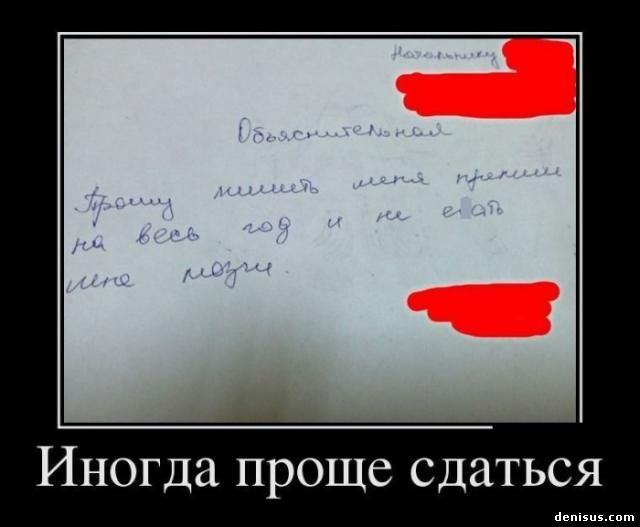 Начальнику
Объяснительная
Прошу лишить меня премии
на весь год и не е ать
мне мозги.
Иногда проще сдаться
denisus.com